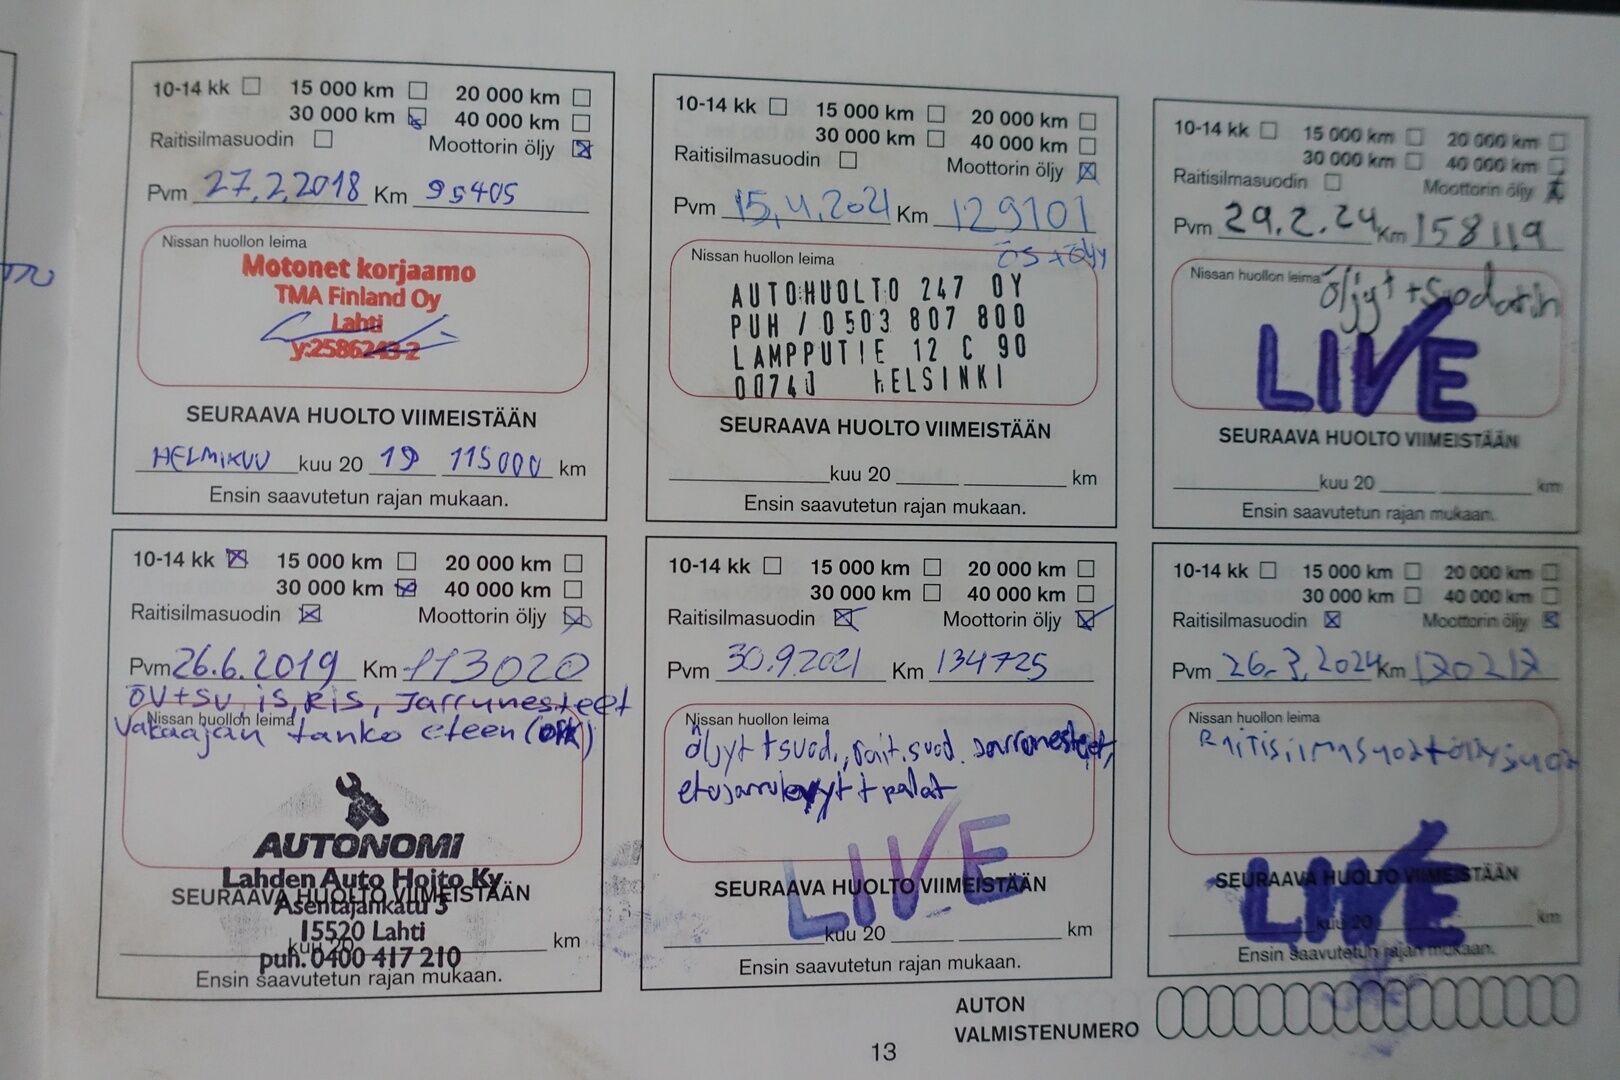 10-14 kk 15 000 km 20 000 km
30 000 km 40 000 km
Raitisilmasuodin Moottorin öljy
Pvm 27.2.2018 Km 95405
Nissan huollon leima
Motonet korjaamo
TMA Finland Oy
Lahti
y:2586243-2
SEURAAVA HUOLTO VIIMEISTÄÄN
HELMIKUU kuu 20 19 115000 km
Ensin saavutetun rajan mukaan.
10-14 kk 15 000 km 20 000 km
30 000 km 40 000 km
Raitisilmasuodin Moottorin öljy
Pvm 26.6.2019 Km 113020
ÖV+SV, IS, RIS, Jarrunesteet
Nissan huollon leima
Vakaajan tanko eteen
AUTONOMI
Lahden Auto Hoito Ky
SEURAAVA HUOLTO VIIMEISTÄÄN
Asentajankatu 5
15520 Lahti
kuu 20 km
puh. 0400 417 210
Ensin saavutetun rajan mukaan.
10-14 kk 15 000 km 20 000 km
30 000 km 40 000 km
Raitisilmasuodin Moottorin öljy
Pvm 15.4.2021 Km 129101
ÖS+öljy
Nissan huollon leima
AUTOHUOLTO 247 OY
PUH / 0503 807 800
LAMPPUTIE 12 C 90
00740 HELSINKI
SEURAAVA HUOLTO VIIMEISTÄÄN
kuu 20 km
Ensin saavutetun rajan mukaan.
10-14 kk 15 000 km 20 000 km
30 000 km 40 000 km
Raitisilmasuodin Moottorin öljy
Pvm 30.9.2021 Km 134725
Nissan huollon leima
öljyt+suod., rait.suod. Jarrunesteet,
etujarrulevyt+palat
LIVE
SEURAAVA HUOLTO VIIMEISTÄÄN
kuu 20 km
Ensin saavutetun rajan mukaan.
10-14 kk 15 000 km 20 000 km
30 000 km 40 000 km
Raitisilmasuodin Moottorin öljy
Pvm 29.2.24 Km 158119
Nissan huollon leima
Öljyt+suodatin
LIVE
SEURAAVA HUOLTO VIIMEISTÄÄN
kuu 20 km
Ensin saavutetun rajan mukaan.
10-14 kk 15 000 km 20 000 km
30 000 km 40 000 km
Raitisilmasuodin Moottorin öljy
Pvm 26.3.2024 Km
Nissan huollon leima
LIVE
SEURAAVA HUOLTO VIIMEISTÄÄN
kuu 20 km
Ensin saavutetun rajan mukaan.
AUTON
VALMISTENUMERO
13